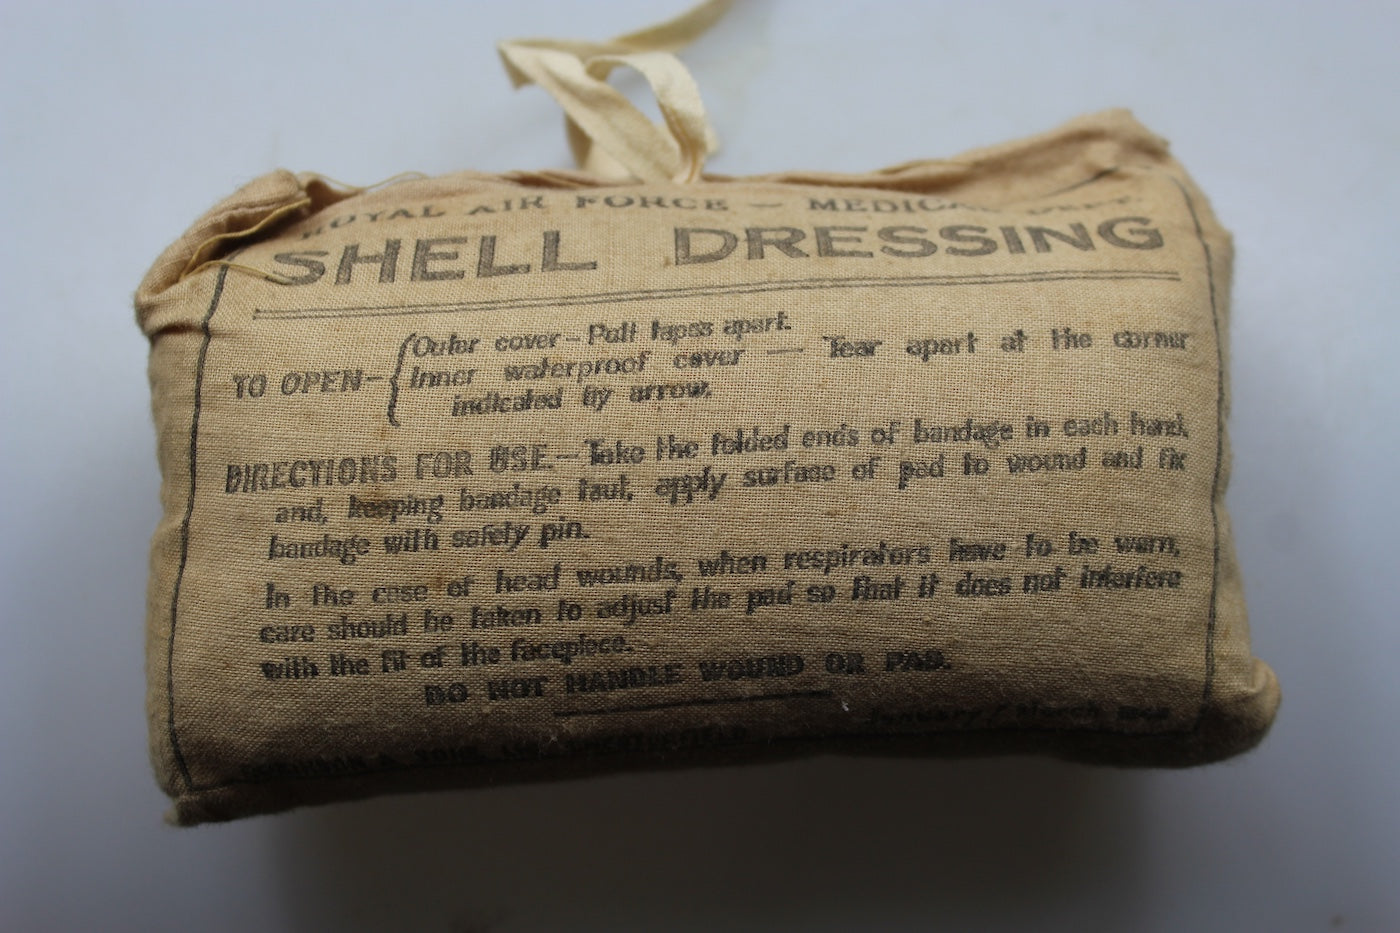 ROYAL AIR FORCE — MEDICAL DEPT.
SHELL DRESSING
TO OPEN— { Outer cover – Pull tapes apart.
Inner waterproof cover — Tear apart at the corner
indicated by arrow.
DIRECTIONS FOR USE.— Take the folded ends of bandage in each hand,
and, keeping bandage taut, apply surface of pad to wound and fix
bandage with safety pin.
In the case of head wounds, when respirators have to be worn,
care should be taken to adjust the pad so that it does not interfere
with the fit of the facepiece.
DO NOT HANDLE WOUND OR PAD.
January / March,
CHESTERFIELD